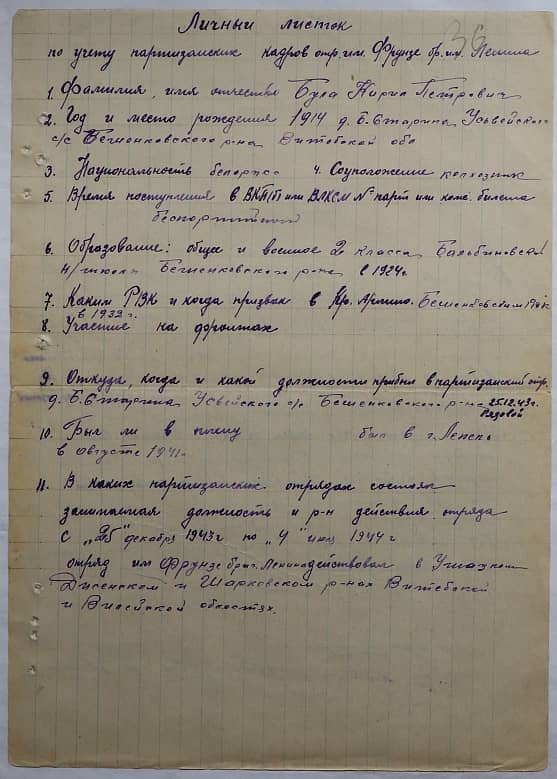 36
Личный листок
по учету партизанских кадров отр. им. Фрунзе бр. им. Ленина
1. Фамилия, имя отчество Була Кирил Петрович
2. Год и место рождения 1914 д. Б. Старина Усвейского
с/с Бешенковского р-на Витебской обл
3. Национальность белорус 4. Соцположение колхозник
5. Время поступления в ВКП/б или ВЛКСМ № парт или комс. билета
беспартийный
6. Образование: общее и военное 2 класса
н/школы Бешенковского р-на в 1924г.
7. Каким РВК и когда призван в Кр. Армию. Бешенковским РВК
в 1939 г.
8. Участие на фронтах
9. Откуда, когда и какой должности прибыл в партизанский отр.
д. Б. Старина Усвейского с/с Бешенковского р-на 25.12.43г.
Рядовой
10. Был ли в плену был в г. Лепель
в августе 1941г.
11. В каких партизанских отрядах состоял
занимаемая должность и р-н действия отряда
с "25" декабря 1943г по "4" июля 1944 г
отряд им Фрунзе бриг. Ленина действовал в Ушацком
Дисенском и Шарковском р-нах Витебской
и Вилейской областях.